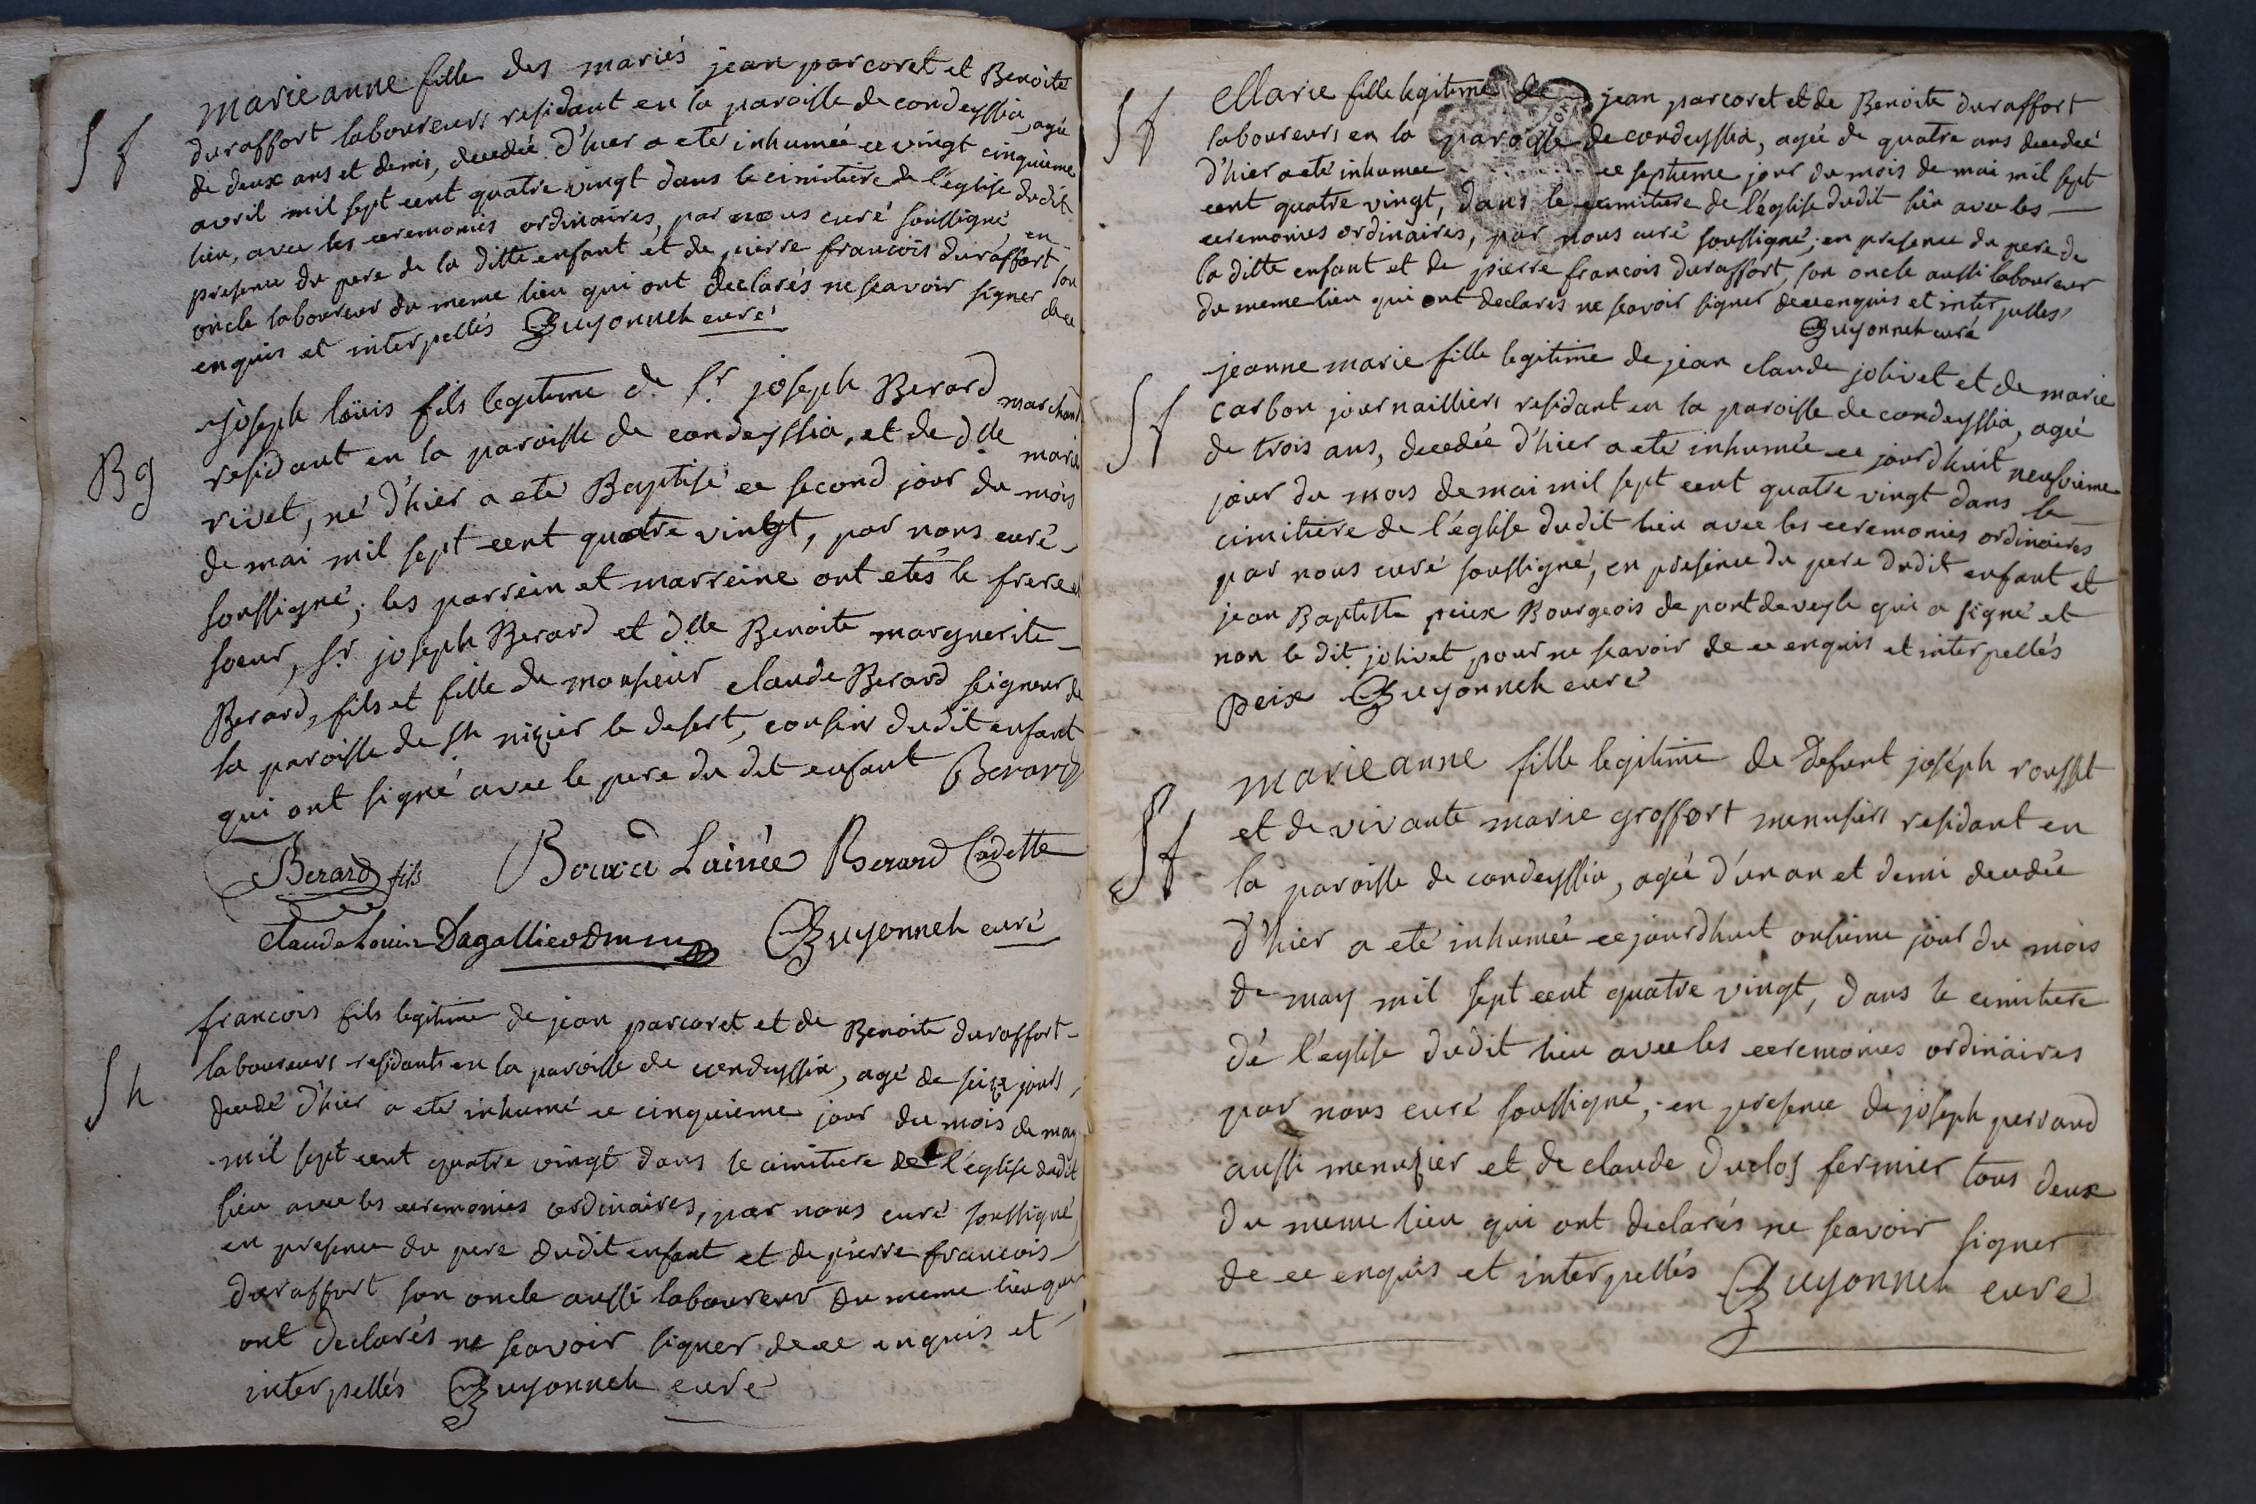 marie anne fille des mariés jean parcoret et Benoite
duraffort laboureurs residant en la paroisse de condeyssia, agée
de deux ans et demis, decedée d'hier a eté inhumée ce vingt cinquieme
avril mil sept cent quatre vingt dans le cimitiere de l'église dudit
lieu, avec les ceremonies ordinaires, par nous curé soussigné, en
presence du pere de la ditte enfant et de pierre francois duraffort son
oncle laboureur du meme lieu qui ont declarés ne scavoir signer de ce
enquis et interpellés Guyonneh curé
Sf
joseph loüis fils legitime de Sr. joseph Berard marchand
residant en la paroisse de condeyssia, et de dlle marie
rivet, né d'hier a eté Baptisé ce second jour du mois
de mai mil sept cent quatre vingt, par nous curé
soussigné; les parrein et marreine ont etés le frere et
soeur, Sr joseph Berard et dlle Benoite marguerite
Berard, fils et fille de monsieur claude Berard seigneur de
la paroisse de St nizier le desert, cousin dudit enfant
qui ont signé avec le pere du dit enfant Berard
Bg
Berard fils Lainée Berard Cadette
claude Louis Dagallier Guyonneh curé
francois fils legitime de jean parcoret et de Benoite duraffort
laboureurs residants en la paroisse de condeyssia, agé de seize jours,
decedé d'hier a eté inhumé ce cinquieme jour du mois de may
mil sept cent quatre vingt dans le cimitiere de l'église dudit
lieu avec les ceremonies ordinaires, par nous curé soussigné,
en presence du pere dudit enfant et de pierre francois
duraffort son oncle aussi laboureur du meme lieu qui
ont declarés ne scavoir signer de ce enquis et
interpellés Guyonneh curé
Sh
Marie fille legitime de jean parcoret et de Benoite duraffort
laboureurs en la paroisse de condeyssia, agée de quatre ans decedeé
d'hier a eté inhumee ce septieme jour du mois de mai mil sept
cent quatre vingt, dans le cimitiere de l'église dudit lieu avec les
ceremonies ordinaires, par nous curé soussigné; en presence du pere de
la ditte enfant et de pierre francois duraffort, son oncle aussi laboureur
du meme lieu qui ont declarés ne scavoir signer de ce enquis et interpellés,
Guyonneh curé
Sf
jeanne marie fille legitime de jean claude jolivet et de marie
carbon journailliers residant en la paroisse de condeyssia, agée
de trois ans, decedée d'hier a eté inhumée ce jourd'huit neufvieme
jour du mois de mai mil sept cent quatre vingt dans le
cimitiere de l'église dudit lieu avec les ceremonies ordinaires
par nous curé soussigné, en presence du pere dudit enfant et
jean Baptiste peix Bourgeois de pont de veyle qui a signé et
non le dit jolivet pour ne scavoir de ce enquis et interpellés
peix Guyonneh curé
Sf
marie anne fille legitime de defunt joséph rousset
et de vivante marie groffort menusiers residant en
la paroisse de condeyssia, agée d'un an et demi decedée
d'hier a eté inhumée ce jourd'huit onsieme jour du mois
de may mil sept cent quatre vingt, dans le cimitiere
de l'eglise dudit lieu avec les ceremonies ordinaires
par nous curé soussigné, en presence de joseph perraud
aussi menuzier et de claude duclos fermier tous deux
du meme lieu qui ont declarés ne scavoir signer
de ce enquis et interpellés Guyonneh curé
Sf